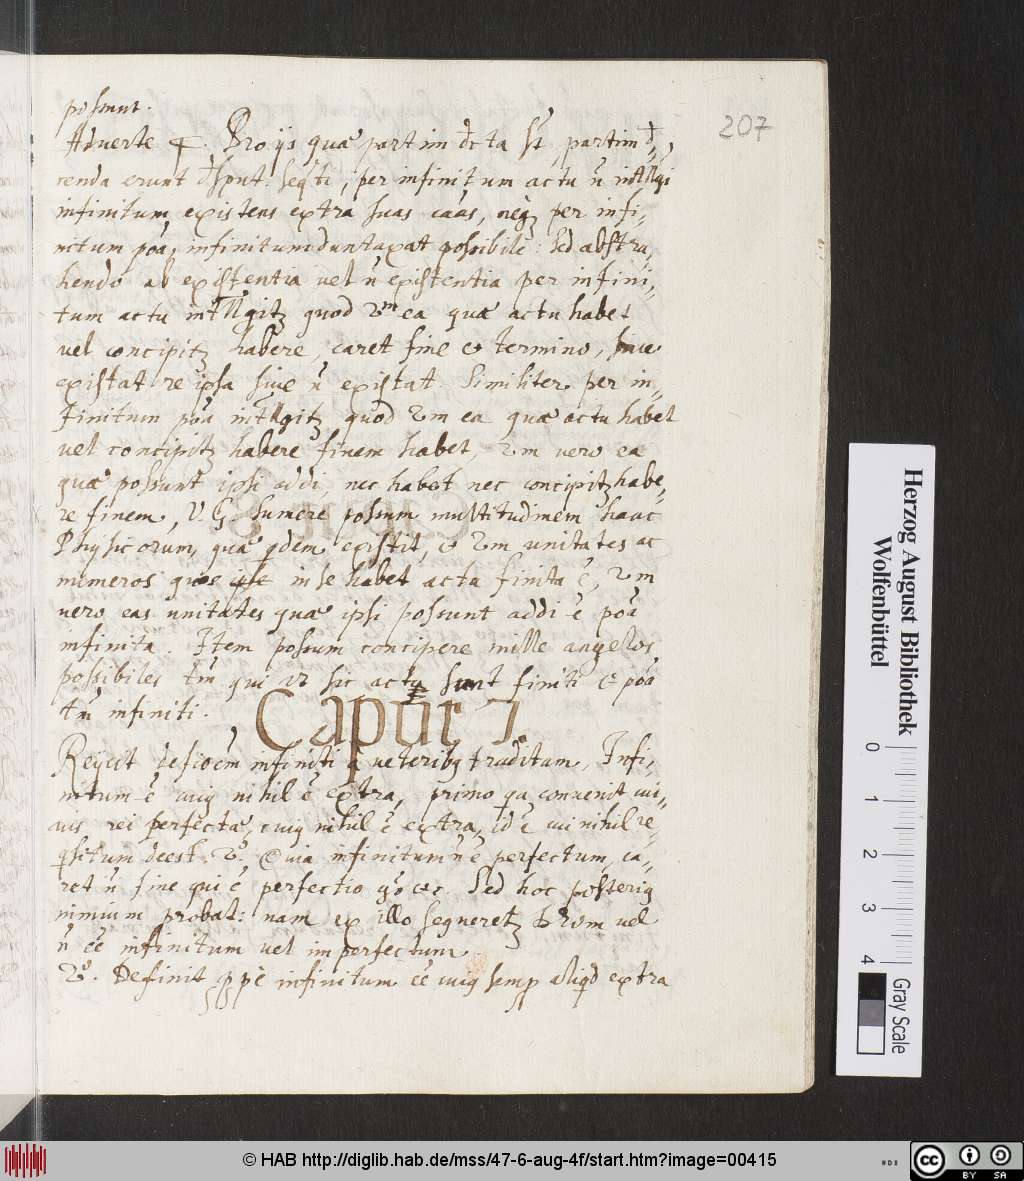 possunt.
207
Adverte 4. Pro ijs quæ partim dcta st, partim d,,
cenda erunt dsput. seqti, per infinitum actu n̄ intllgi
infinitum existens extra suas caās, neq; per infi,,
nitum poā, infinitum duntaxat possibile: sed abstra,,
hendo ab existentia vel n̄ existentia per infini,,
tum actu intllgitz quod 2m ea quæ actu habet
vel concipitz habere, caret fine et termino, sive
existat re ipsa sive n̄ existat. Similiter per in,,
finitum poā intllgitz quod 2m ea quæ actu habet
vel concipitz habere finem habet, 2m vero ea
quæ possunt ipsi addi, nec habet nec concipitz habe,,
re finem, V.G. sumere possum multitudinem hanc
Physicorum, quæ qdem existit, et 2m unitates ac
numeros quos in se habet actu finita ē, 2m
vero eas unitates quæ ipsi possunt addi ē poā
infinita. Item possum concipere mille angelos
possibiles tm̄ qui ut sic actu sunt finiti et poā
tm̄ infiniti.
Caput 7.
Reijcit defioēm infiniti a veteribq traditam, Infi,,
nitum ē cuiq nihil ē extra, primo qa convenit cui,,
vis rei perfectæ, cuiq nihil ē extra, id ē cui nihil re,,
qsitum deest. 2º. Quia infinitum n̄ ē perfectum, ca,,
ret n̄ fine qui ē perfectio go etc. Sed hoc posteriq
nimium probat: nam ex illo sequeretz Deum vel
n̄ eē infinitum vel imperfectum.
2º. Definit infinitum eē cuiq semp aliqd extra
Herzog August Bibliothek
Wolfenbüttel
0 1 2 3 4
Gray Scale
© HAB http://diglib.hab.de/mss/47-6-aug-4f/start.htm?image=00415
cc BY SA